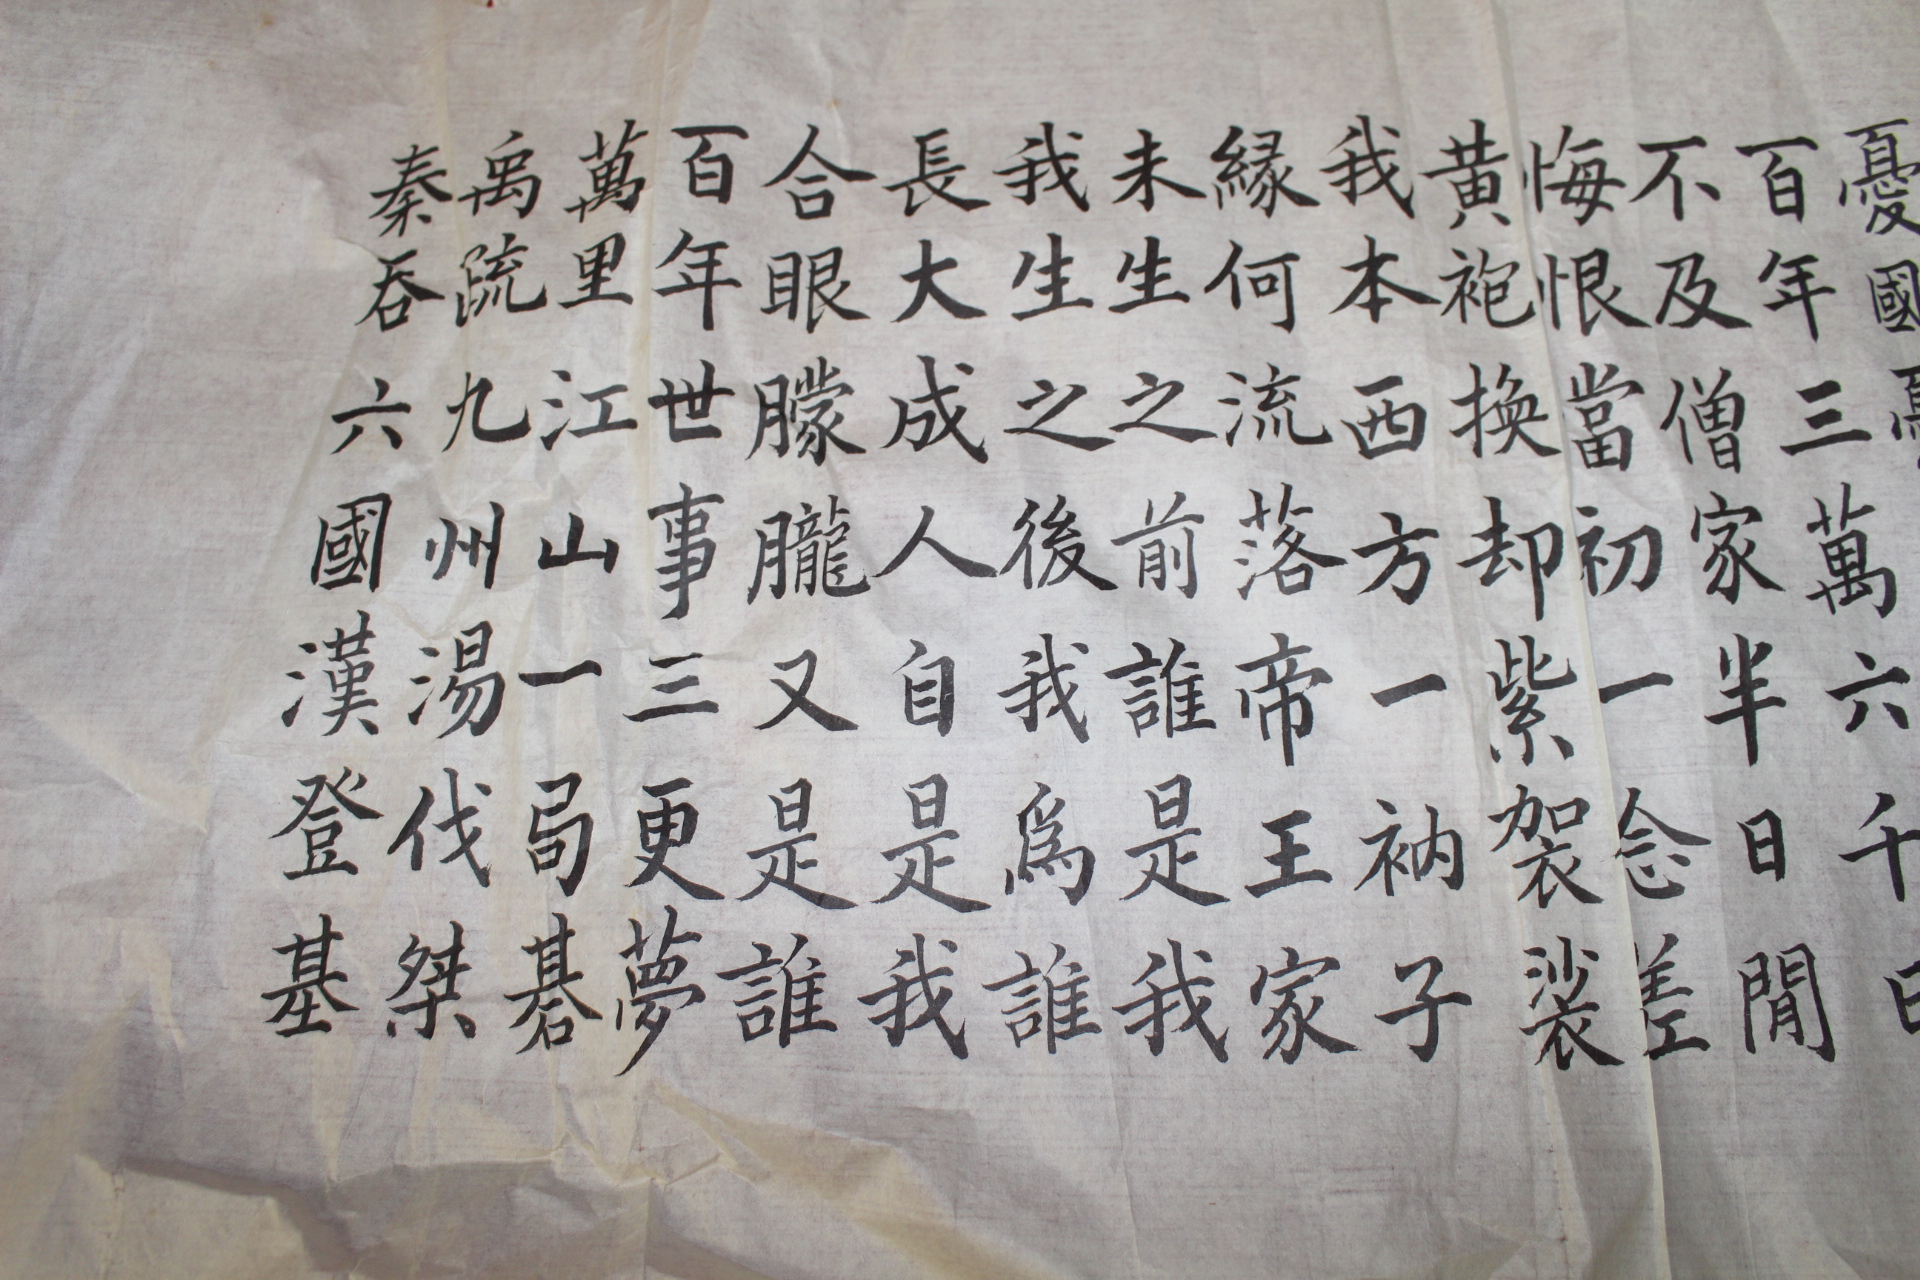 憂國
百年三萬六千日
不及僧家半日閒
悔恨當初一念差
黄袍換却紫袈裟
我本西方一衲子
緣何流落帝王家
未生之前誰是我
我生之後我爲誰
長大成人自是我
合眼朦朧又是誰
百年世事三更夢
萬里江山一局碁
禹疏九州湯伐桀
秦吞六國漢登基